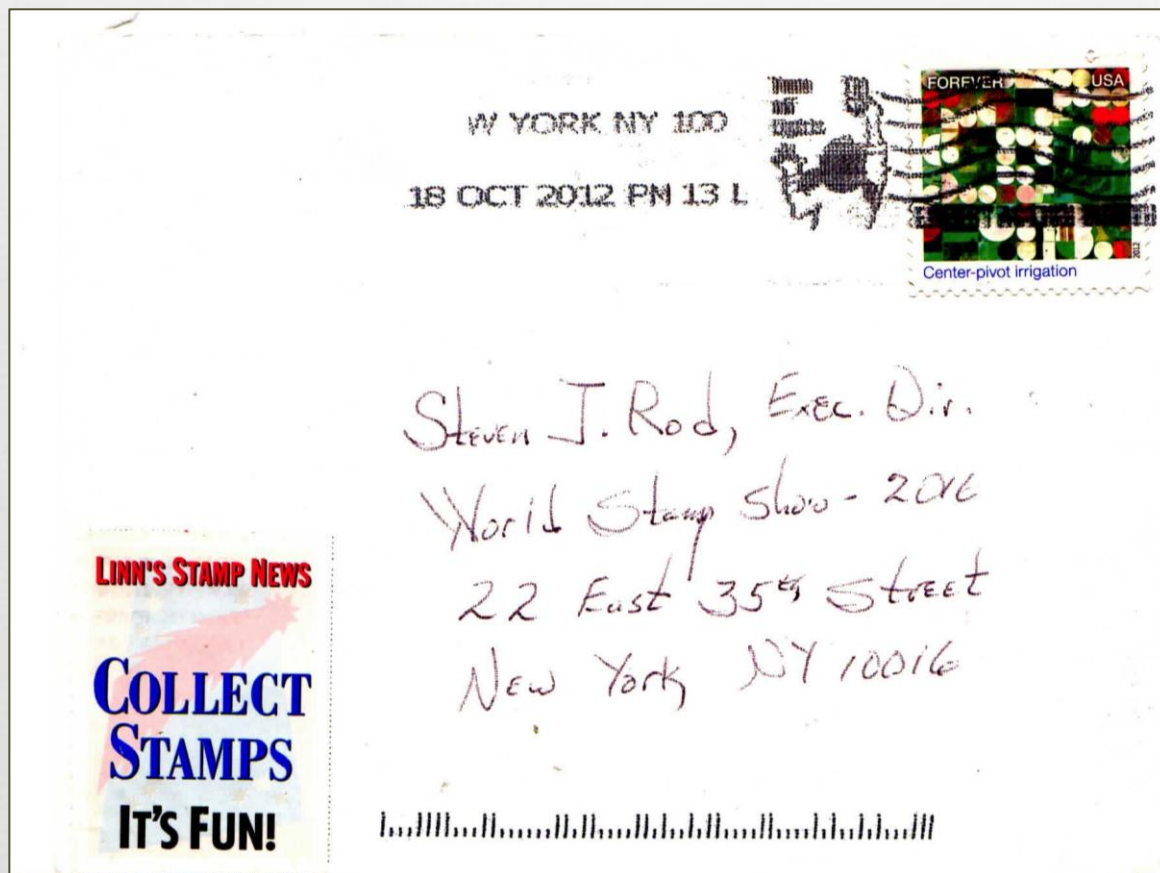 W YORK NY 100
18 OCT 2012 PM 13 L
FOREVER USA
2012
Center-pivot irrigation
Steven J. Rod, Exec. Dir.
World Stamp Show - 2016
22 East 35th Street
New York NY 10016
LINN'S STAMP NEWS
COLLECT
STAMPS
IT'S FUN!